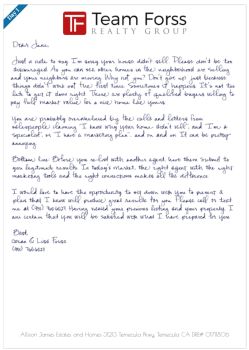 Team Forss
REALTY GROUP
Dear Jane,
Just a note to say I'm sorry your house didn't sell. Please don't be too
discouraged. As you can see other homes in the neighborhood are selling
and your neighbors are moving. Why not you? Don't give up just because
things didn't work out the first time. Sometimes it happens. It's not too
late to get it done right. There are plenty of qualified buyers willing to
pay full market value for a nice home like yours.
You are probably overwhelmed by the calls and letters from
salespeople claiming "I know why your home didn't sell, and I'm a
specialist, or I have a marketing plan" and on and on. It can be pretty
annoying.
Bottom line: Before you re-list with another agent have them submit to
you legitimate results. In today's market, the right agent with the right
marketing tools and the right connections makes all the difference.
I would love to have the opportunity to sit down with you to present a
plan that I know will produce great results for you. Please call or text
me at
Having viewed your previous listing and your property, I
am certain that you will be satisfied with what I have prepared for you.
Best,
& Lisa Forss
Allison James Estates and Homes
Temecula Pkwy, Temecula CA